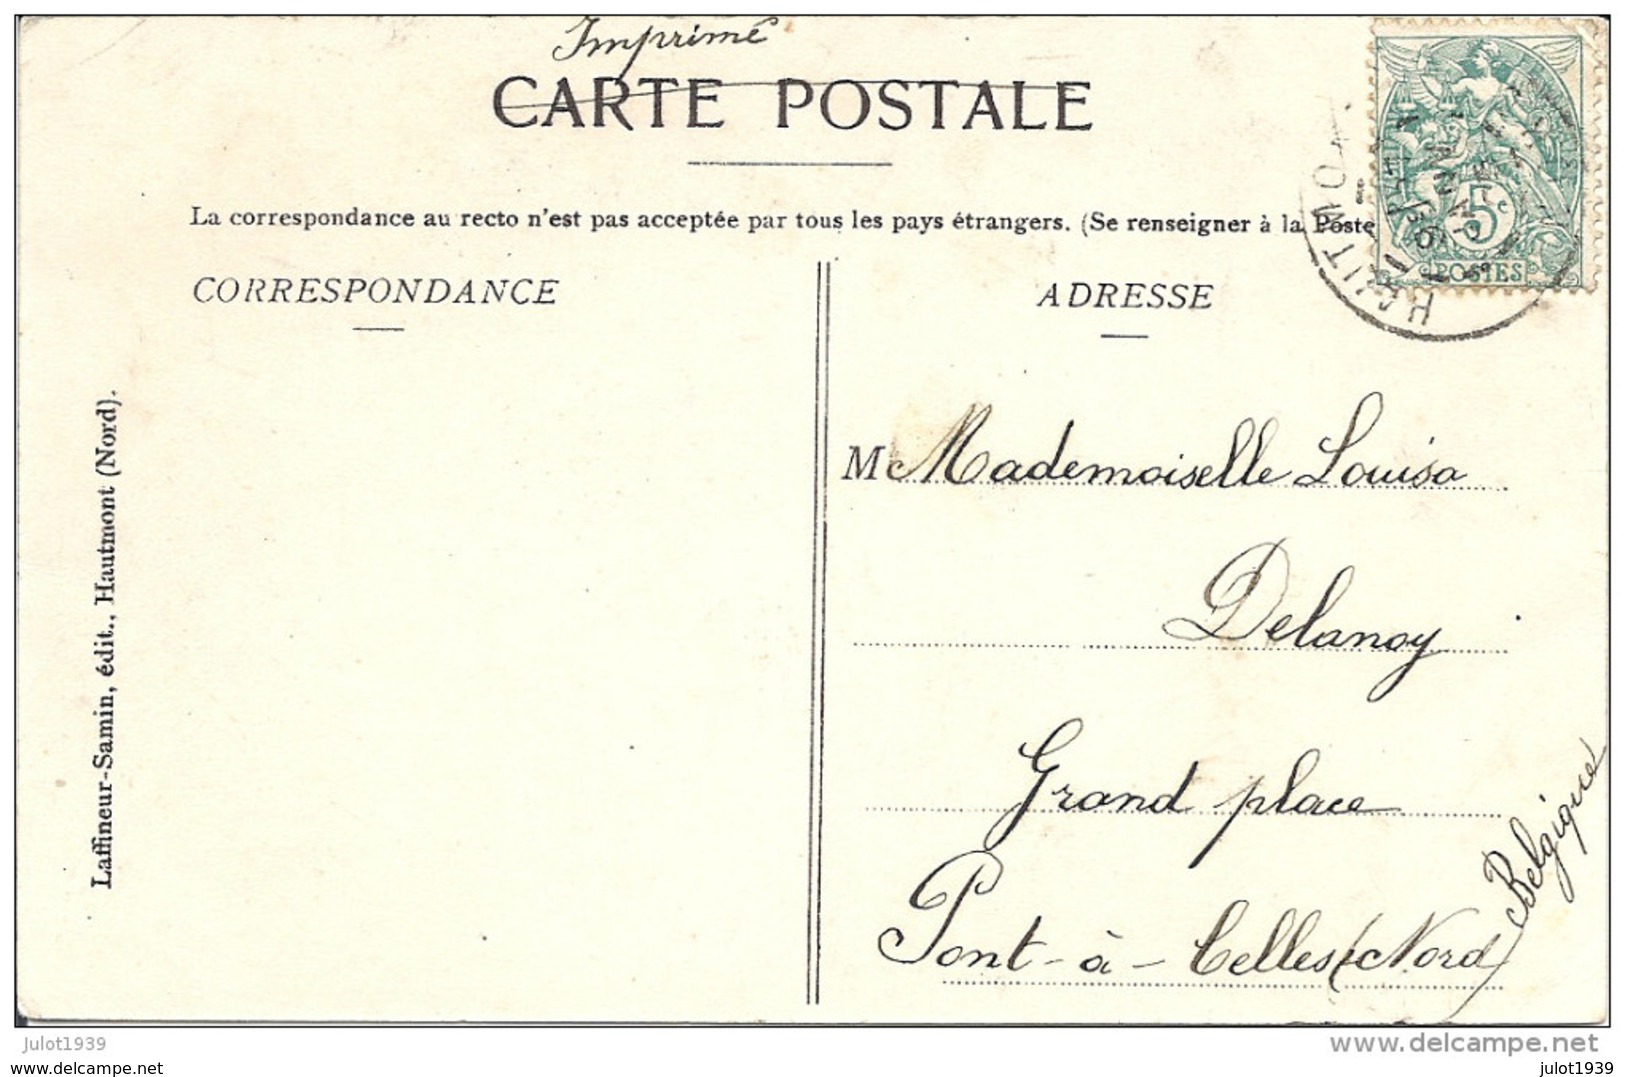 Imprimé
CARTE POSTALE
La correspondance au recto n'est pas acceptée par tous les pays étrangers. (Se renseigner à la Poste
CORRESPONDANCE
ADRESSE
HAUTMO
5c
POSTES
M Mademoiselle Louisa
Delanoy
Grand place
Pont-à-Celles (Nord)
Belgique
Laffineur-Samin, édit., Hautmont (Nord).
www.delcampe.net
julot1939
julot1939
julot1939